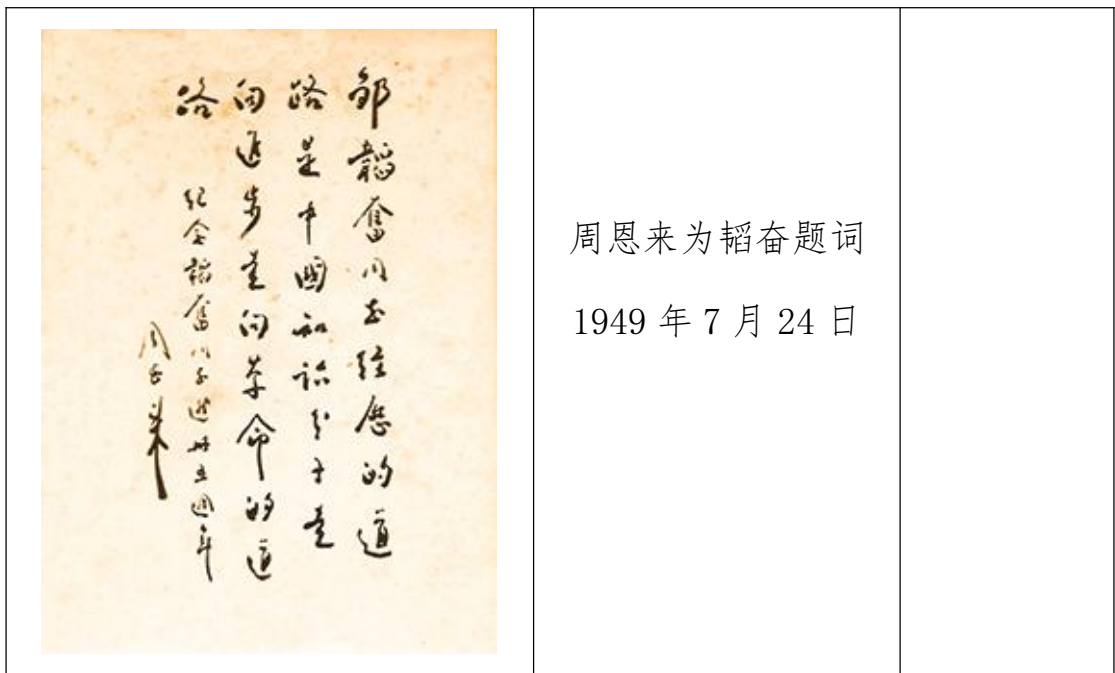 邹韬奋同志经历的道
路是中國知識分子走
向进步走向革命的道
路
纪念韬奋同志逝世五週年
周恩来
周恩来为韬奋题词
1949 年 7 月 24 日